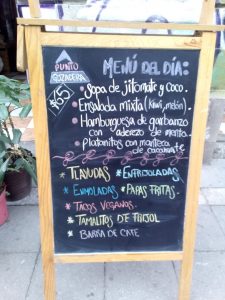 PUNTO
GOZADERA
$65
MENÚ DEL DÍA:
• Sopa de jitomate y coco.
• Ensalada mixta (kiwi, melón).
• Hamburguesa de garbanzo
con aderezo de menta.
• Platanitos con manteca
de cacahuate
* TLAYUDAS * ENFRIJOLADAS
* ENMOLADAS * PAPAS FRITAS.
* TACOS VEGANOS.
* TAMALITOS DE FRIJOL
* BARRA DE CAFE